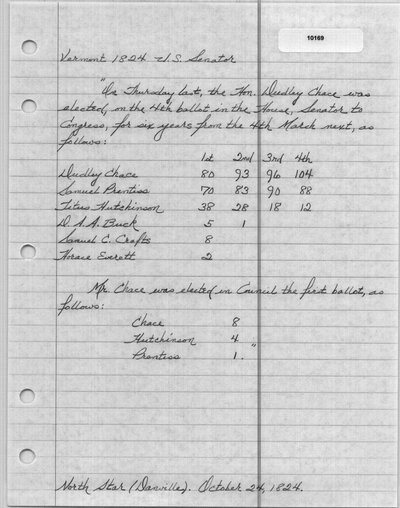 10169
Vermont 1824 U.S. Senator
"On Thursday last, the Hon. Dudley Chace was
elected, on the 4th ballot in the House, Senator to
Congress, for six years from the 4th March next, as
follows:
1st 2nd 3rd 4th
Dudley Chace 80 93 96 104
Samuel Prentiss 70 83 90 88
Titus Hutchinson 38 28 18 12
D. A. A. Buck 5 1
Samuel C. Crafts 8
Horace Everett 2
Mr. Chace was elected in Council the first ballot, as
follows:
Chace 8
Hutchinson 4 "
Prentiss 1.
North Star (Danville). October 24, 1824.